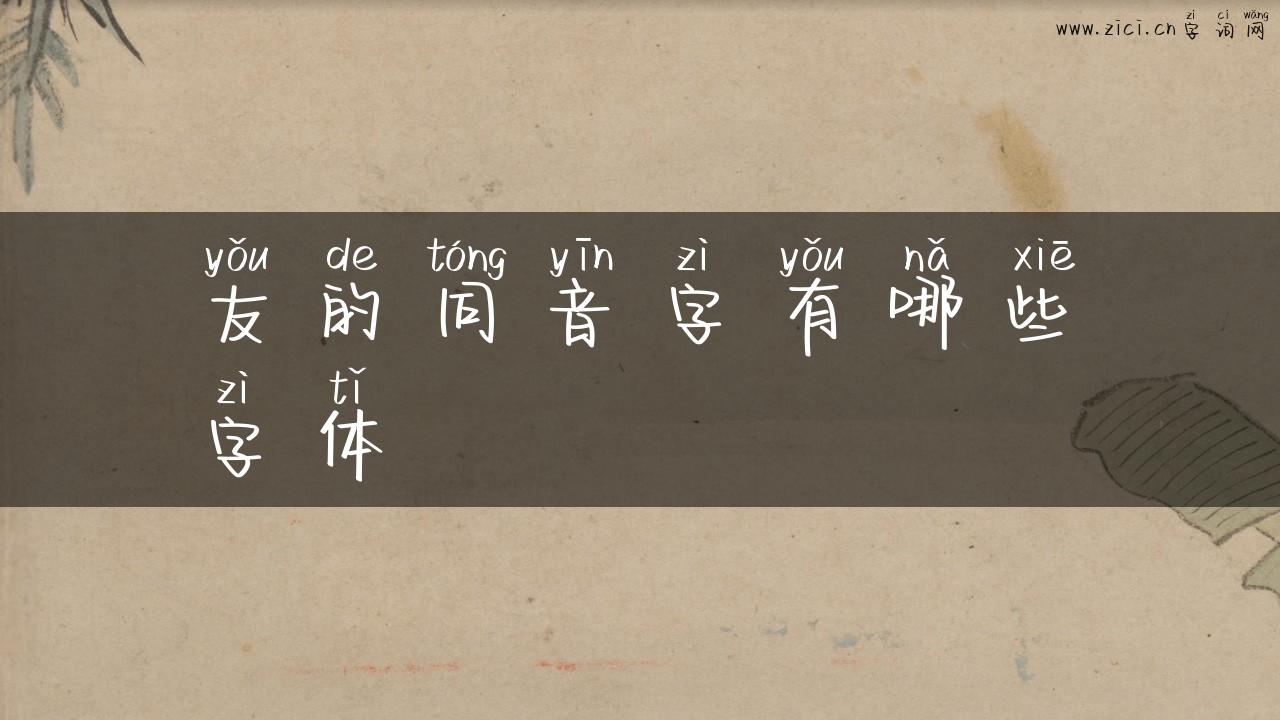 zì cí wǎng
www.zici.cn 字 词 网
yǒu de tóng yīn zì yǒu nǎ xiē
友 的 同 音 字 有 哪 些
zì tǐ
字 体